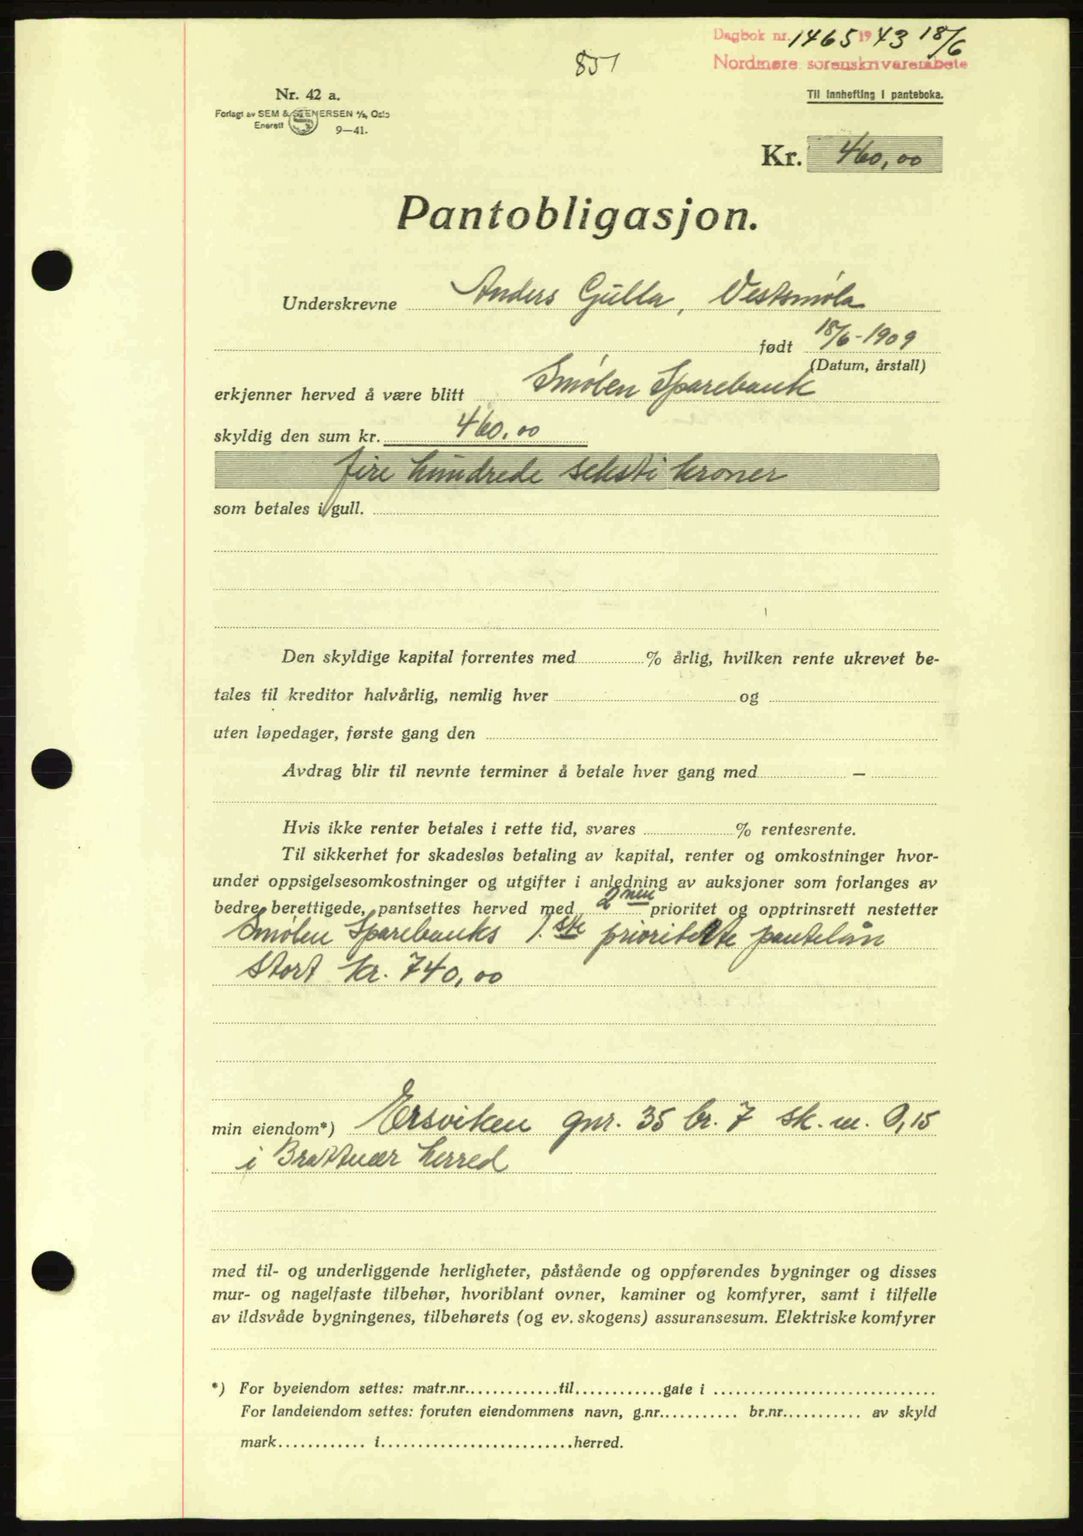 Dagbok nr. 1465 1943 18/6
Nordmøre sorenskriverembete
851
Nr. 42 a.
Til innhefting i panteboka.
Forlagt av SEM & STENERSEN A/S, Oslo
Enerett 9—41.
Kr. 460,00
Pantobligasjon.
Underskrevne Anders Gulla, Vestsmøla
født 18/6-1909
(Datum, årstall)
erkjenner herved å være blitt Smølen Sparebank
skyldig den sum kr. 460,00
fire hundrede seksti kroner
som betales i gull.
Den skyldige kapital forrentes med % årlig, hvilken rente ukrevet be-
tales til kreditor halvårlig, nemlig hver og
uten løpedager, første gang den
Avdrag blir til nevnte terminer å betale hver gang med —
Hvis ikke renter betales i rette tid, svares % rentesrente.
Til sikkerhet for skadesløs betaling av kapital, renter og omkostninger hvor-
under oppsigelsesomkostninger og utgifter i anledning av auksjoner som forlanges av
bedre berettigede, pantsettes herved med 2nen prioritet og opptrinsrett nestetter
Smølen Sparebanks 1.ste prioriterte pantelån
stort kr. 740,00
min eiendom*) Ersviken gnr. 35 br. 7 sk. m. 0,15
i Brattvær herred
med til- og underliggende herligheter, påstående og oppførendes bygninger og disses
mur- og nagelfaste tilbehør, hvoriblant ovner, kaminer og komfyrer, samt i tilfelle
av ildsvåde bygningenes, tilbehørets (og ev. skogens) assuransesum. Elektriske komfyrer
*) For byeiendom settes: matr.nr.............til............gate i ..............................
For landeiendom settes: foruten eiendommens navn, g.nr........... br.nr........... av skyld
mark............ i..........................herred.